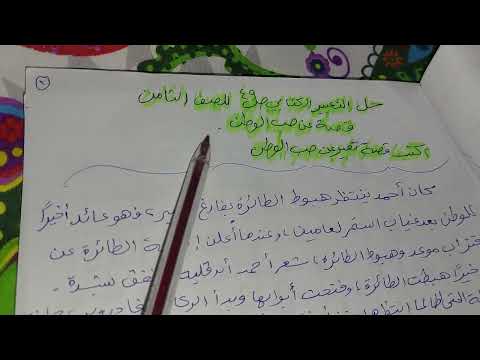 حل التعبير الكتابي ص ٤٩ للصف الثامن
قصة عن حب الوطن .
اكتب قصة تعبر عن حب الوطن
كان أحمد ينتظر هبوط الطائرة بفارغ ، فهو عائد أخيرًا
للوطن بعد غياب استمر لعامين ، وعندما أعلن الطائرة عن
اقتراب موعد هبوط الطائرة ، شعر أحمد أن قلبه بشدة .
أخيرًا هبطت الطائرة ، وفتحت أبوابها وبدأ
التي طالما انتظرها